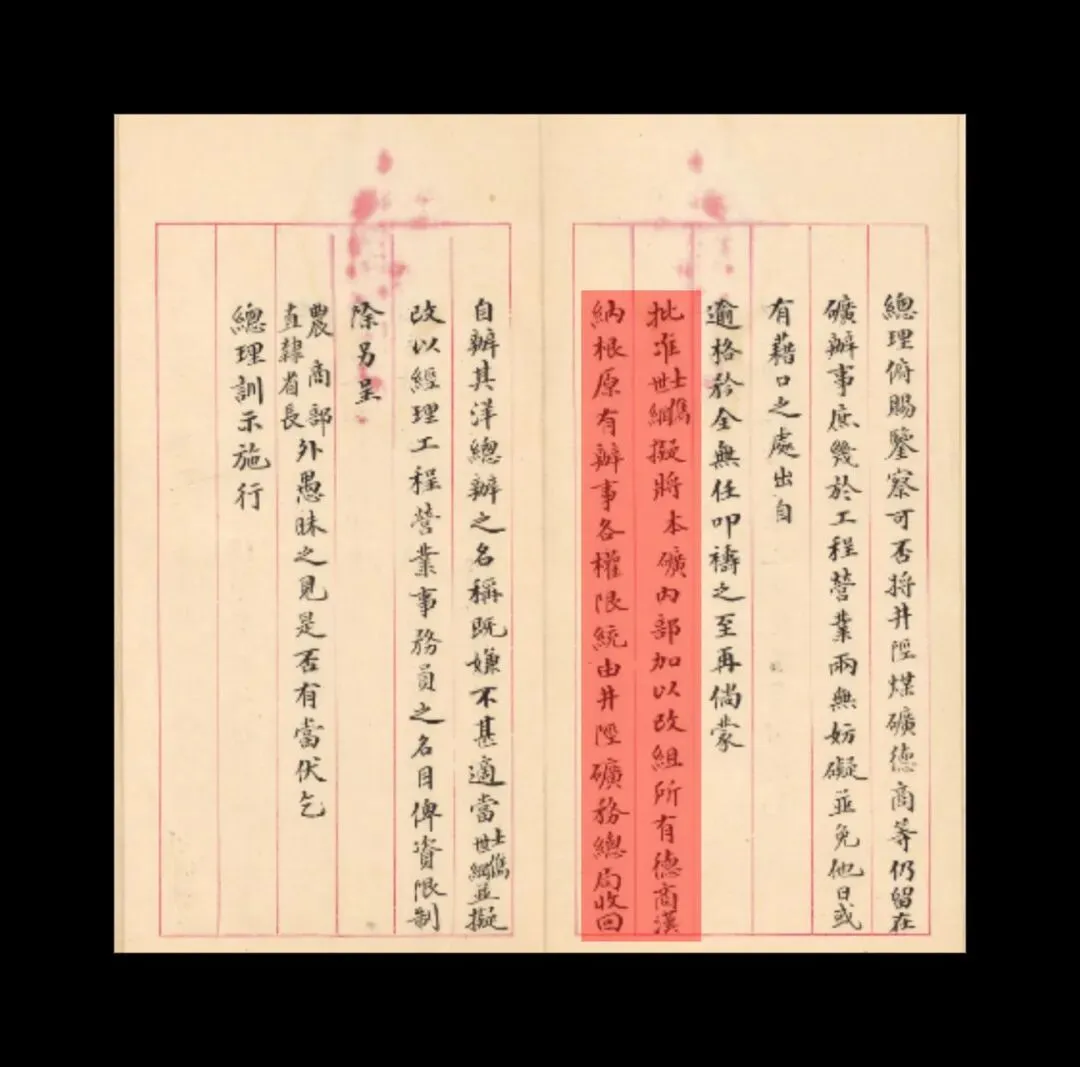 總理俯賜鑒察可否將井陘煤礦德商等仍留在
礦辦事庶幾於工程營業兩無妨礙並免他日或
有藉口之處出自
逾格矜全無任叩禱之至再倘蒙
批准士儁世綱擬將本礦內部加以改組所有德商漢
納根原有辦事各權限統由井陘礦務總局收回
自辦其洋總辦之名稱既嫌不甚適當士儁世綱並擬
改以經理工程營業事務員之名目俾資限制
除另呈
農商部直隸省長外愚昧之見是否有當伏乞
總理訓示施行